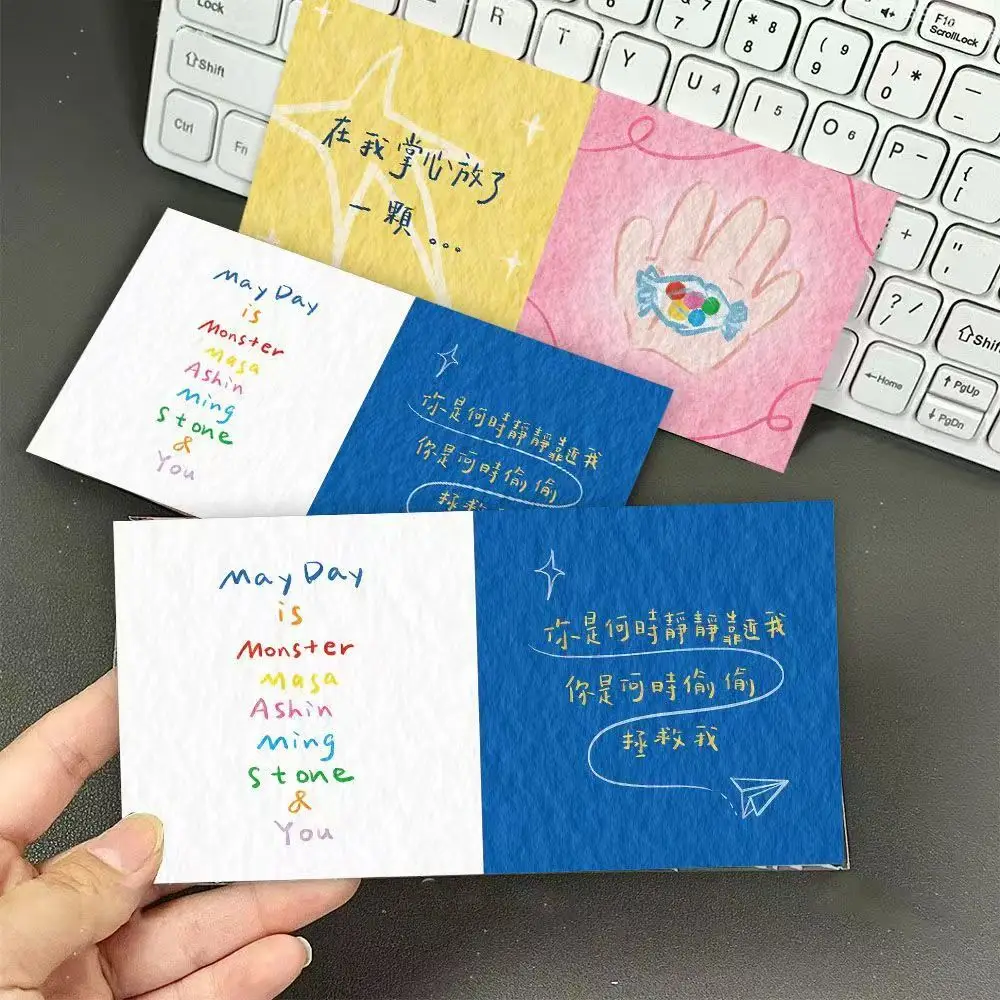 Lock
Shift
Ctrl
Fn
R
T
Y
U 4
I 5
O 6
P -
& 7
7
* 8
8
( 9
9
) *
0
—
-
F10
ScrollLock
{
[
+
"
'
? /
/
Shift
←Home
↑ PgUp
↓ PgDn
在我掌心放了
一顆...
May Day
is
Monster
Masa
Ashin
Ming
Stone
&
You
你是何時靜靜靠近我
你是何時偷偷
拯救
May Day
is
Monster
Masa
Ashin
Ming
Stone
&
You
你是何時靜靜靠近我
你是何時偷偷
拯救我